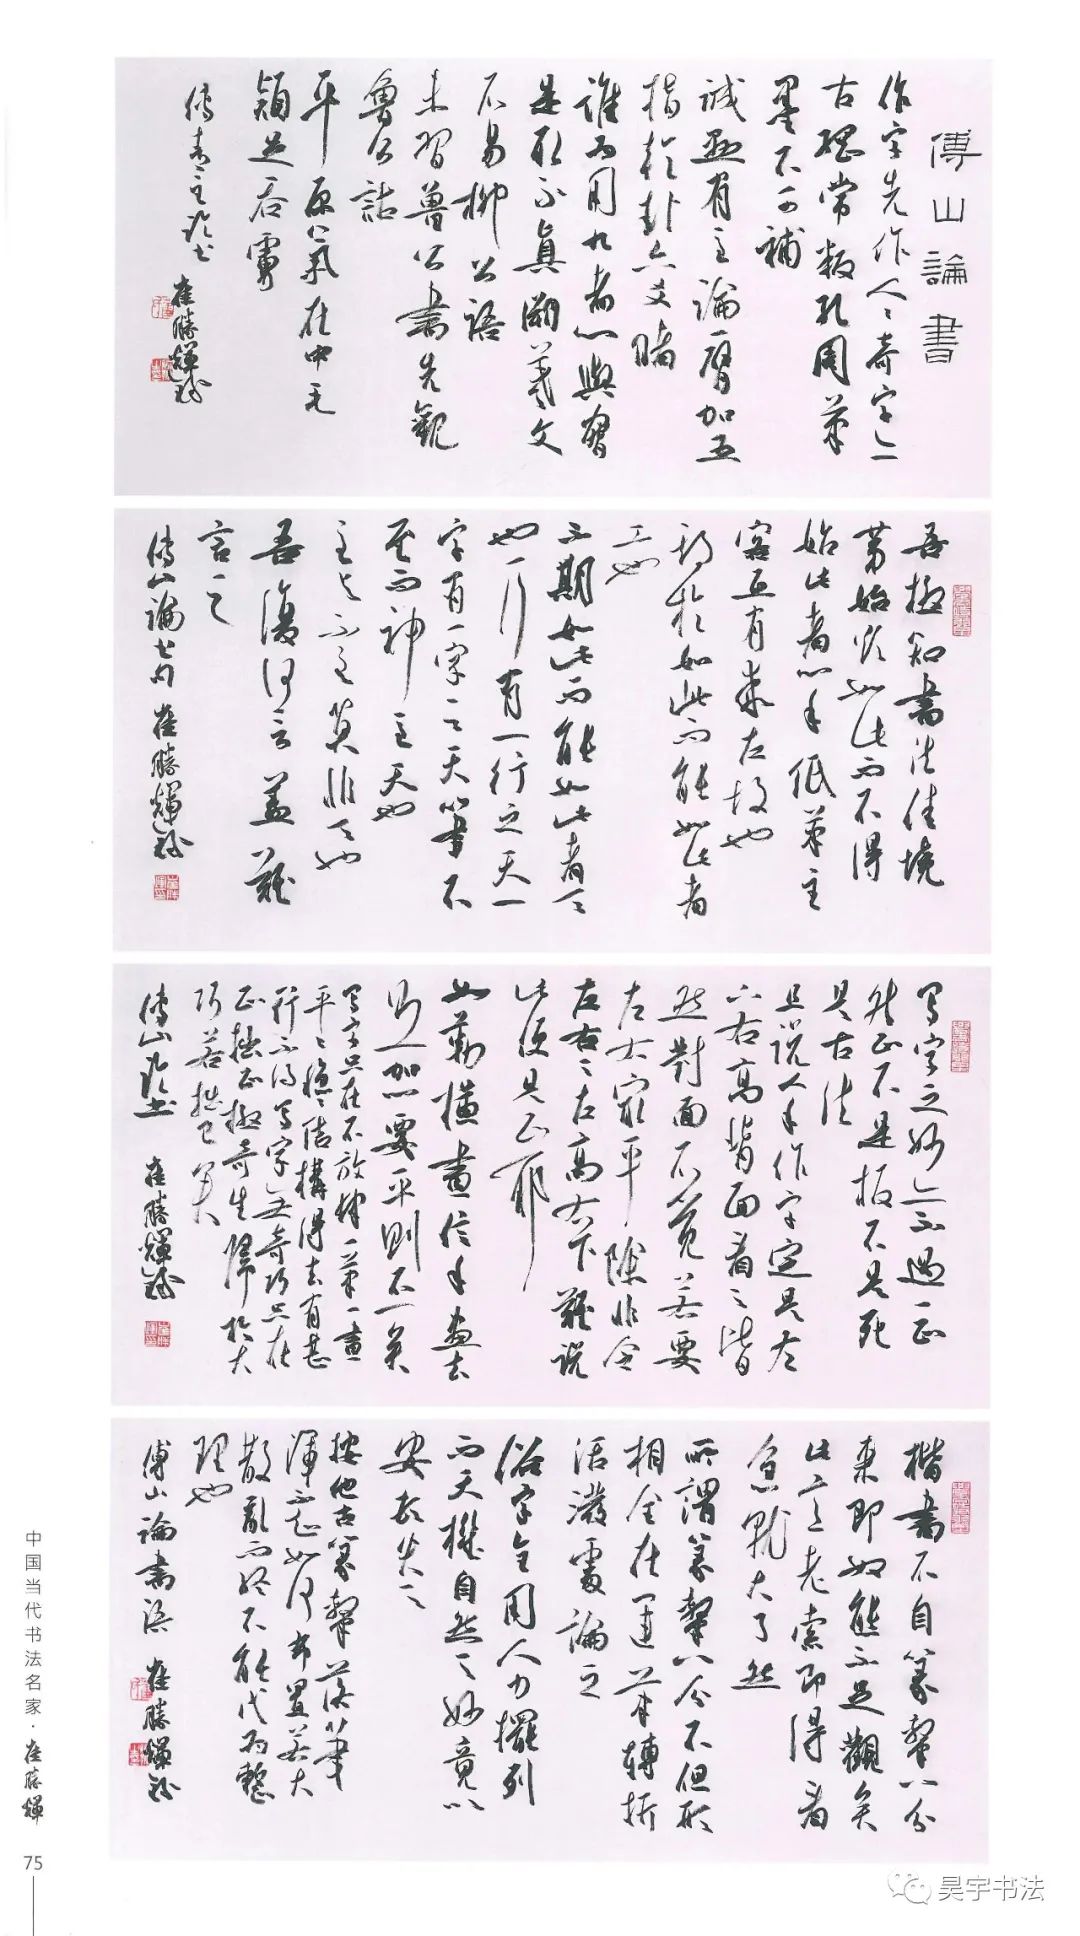 傅山論書
作字先作人人奇字亦
古綱常叛孔周筆
墨不可補
誠懸有至論一臂加五
指乾卦六爻睹
誰為用九者心與腕
是取永真溯羲文
不易柳公語
未習魯公書先觀
魯公詁
平原氣在中毛
穎足吞虜
傅青主論書
崔勝輝録
吾極知書法佳境
第始欲如此而不得
始此者心手紙筆主
客互有乖左故也
期於如此而能如此者
工也
不期如此而能如此者天
也一行有一行之天一
字有一字之天筆不
至而神至天也
至與不至莫非天也
吾復何言蓋難
言之
傅山論書句 崔勝輝録
寫字之妙亦不過一正
然正不是板不是死
只古法
且說人手作字定是左
下右高背面看之皆
然對面不覺若要
左右最平除非令
左右右左高右下難說
此便只正耶
如勒橫畫信手畫去
則一加心要平則不一矣
寫字只在不放肆一筆一畫
平平穩穩結構得去有甚
行不得寫字無奇巧只在
正拙正極奇生歸於大
巧若拙已矣
傅山論書 崔勝輝録
楷書不自篆隸八分
來即奴態不足觀矣
此意老索即得看
急就大了然
所謂篆隸八分不但形
相全在運筆轉折
活潑處論之
俗字全用人力擺列
而天機自然之妙竟以
安頓失之
按他古篆隸落筆
渾不知如何布置若大
散亂而終不能代為整
理也
傅山論書語 崔勝輝録
中国当代书法名家·崔勝輝
75
昊宇书法